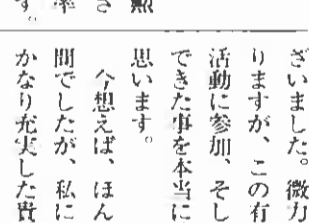 ざいました。微力
りますが、この有
活動に参加、そし
できた事を本当に
思います。
今想えば、ほん
間でしたが、私に
かなり充実した貴
勲
さ
率
す。